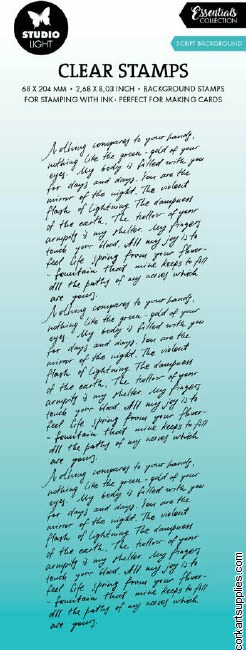 STUDIO
LIGHT
Essentials
COLLECTION
SCRIPT BACKGROUND
CLEAR STAMPS
68 X 204 MM • 2,68 X 8,03 INCH • BACKGROUND STAMPS
FOR STAMPING WITH INK • PERFECT FOR MAKING CARDS
Nothing compares to your hands,
nothing like the green-gold of your
eyes. My body is filled with you
for days and days. You are the
mirror of the night. The violent
flash of lightning. The dampness
of the earth. The hollow of your
armpits is my shelter. My fingers
touch your blood. All my joy is to
feel life spring from your flower-
-fountain that mine keeps to fill
all the paths of my nerves which
are yours.
Nothing compares to your hands,
nothing like the green-gold of your
eyes. My body is filled with you
for days and days. You are the
mirror of the night. The violent
flash of lightning. The dampness
of the earth. The hollow of your
armpits is my shelter. My fingers
touch your blood. All my joy is to
feel life spring from your flower-
-fountain that mine keeps to fill
all the paths of my nerves which
are yours.
Nothing compares to your hands,
nothing like the green-gold of your
eyes. My body is filled with you
for days and days. You are the
mirror of the night. The violent
flash of lightning. The dampness
of the earth. The hollow of your
armpits is my shelter. My fingers
touch your blood. All my joy is to
feel life spring from your flower-
-fountain that mine keeps to fill
all the paths of my nerves which
are yours.
corkartsupplies.com